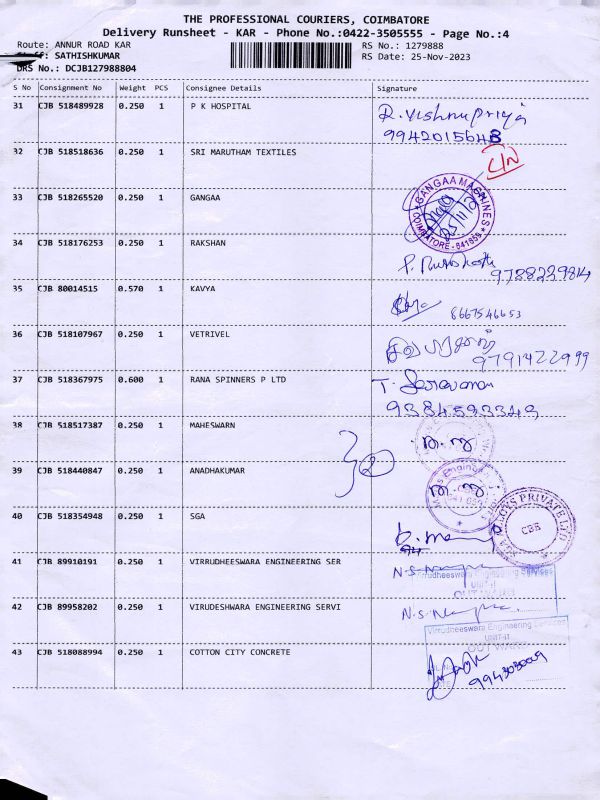 THE PROFESSIONAL COURIERS, COIMBATORE
Delivery Runsheet - KAR - Phone No.:0422-3505555 - Page No.:4
Route: ANNUR ROAD KAR RS No.: 1279888
SATHISHKUMAR RS Date: 25-Nov-2023
DRS No.: DCJB127988804
S No Consignment No Weight PCS Consignee Details Signature
31 CJB 518489928 0.250 1 P K HOSPITAL R. Vishnupriya
9942015648
32 CJB 518518636 0.250 1 SRI MARUTHAM TEXTILES
33 CJB 518265520 0.250 1 GANGAA GANGAA MACHINES COIMBATORE - 641659
34 CJB 518176253 0.250 1 RAKSHAN
9788229814
35 CJB 80014515 0.570 1 KAVYA 8667546653
36 CJB 518107967 0.250 1 VETRIVEL
9791422999
37 CJB 518367975 0.600 1 RANA SPINNERS P LTD T. Saravanan
9384593349
38 CJB 518517387 0.250 1 MAHESWARN
2
39 CJB 518440847 0.250 1 ANADHAKUMAR
40 CJB 518354948 0.250 1 SGA ALLOYS PRIVATE LTD CBE
41 CJB 89910191 0.250 1 VIRRUDHEESWARA ENGINEERING SER
Virrudheeswara Engineering Services
UNIT-II
OUTWARD
42 CJB 89958202 0.250 1 VIRUDESHWARA ENGINEERING SERVI
Virrudheeswara Engineering Services
UNIT-II
OUTWARD
43 CJB 518088994 0.250 1 COTTON CITY CONCRETE